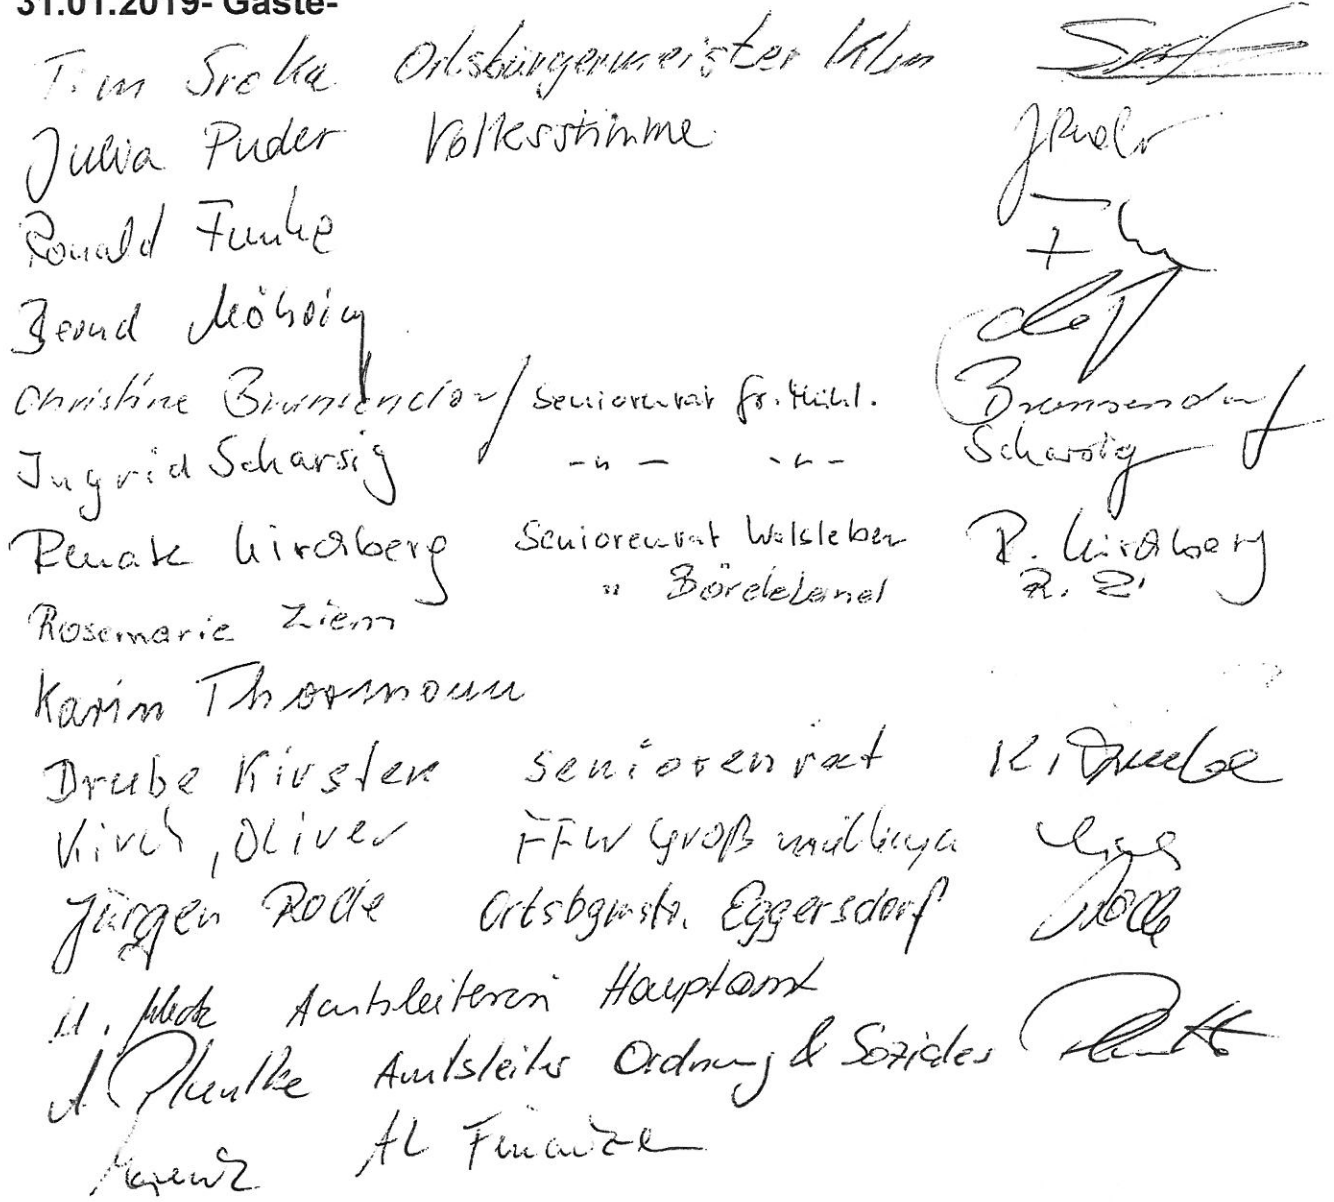 31.01.2019- Gäste-
Tim Ortsbürgermeister Klm
Julia Puder Volksstimme JPuder
Ronald Funke
Bernd Möhring
Christine Brunsendorf Seniorenrat Gr. Mühl. Brunsendorf
Ingrid Scharsig -"- -"- Scharsig
Renate Kirchberg Seniorenrat Welsleben R. Kirchberg
Rosemarie Ziem " Bördeland R. Z.
Karin Thormann
Drube Kirsten Seniorenrat K. Drube
Kirch, Oliver FFW Großmühlingen
Jürgen Rode Ortsbgmstr. Eggersdorf Rode
Amtsleiterin Hauptamt
Amtsleiter Ordnung & Soziales
AL Finanzen